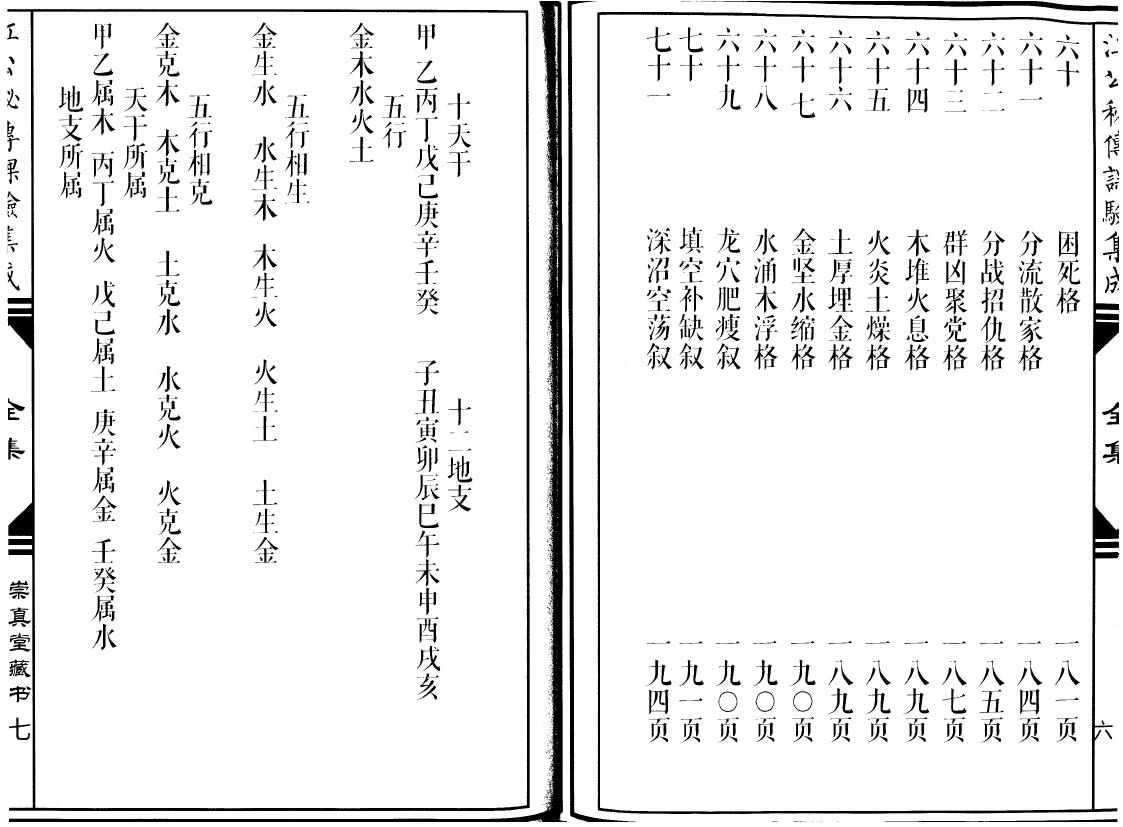 江公秘传课验集成
全集
六
六十 困死格 一八一页
六十一 分流散家格 一八四页
六十二 分战招仇格 一八五页
六十三 群凶聚党格 一八七页
六十四 木堆火息格 一八九页
六十五 火炎土燥格 一八九页
六十六 土厚埋金格 一八九页
六十七 金坚水缩格 一九〇页
六十八 水涌木浮格 一九〇页
六十九 龙穴肥瘦叙 一九〇页
七十 填空补缺叙 一九一页
七十一 深沼空荡叙 一九四页
十天干 十二地支
甲乙丙丁戊己庚辛壬癸 子丑寅卯辰巳午未申酉戌亥
五行
金木水火土
五行相生
金生水 水生木 木生火 火生土 土生金
五行相克
金克木 木克土 土克水 水克火 火克金
天干所属
甲乙属木 丙丁属火 戊己属土 庚辛属金 壬癸属水
地支所属
江公秘传课验集成
全集
崇真堂藏书 七